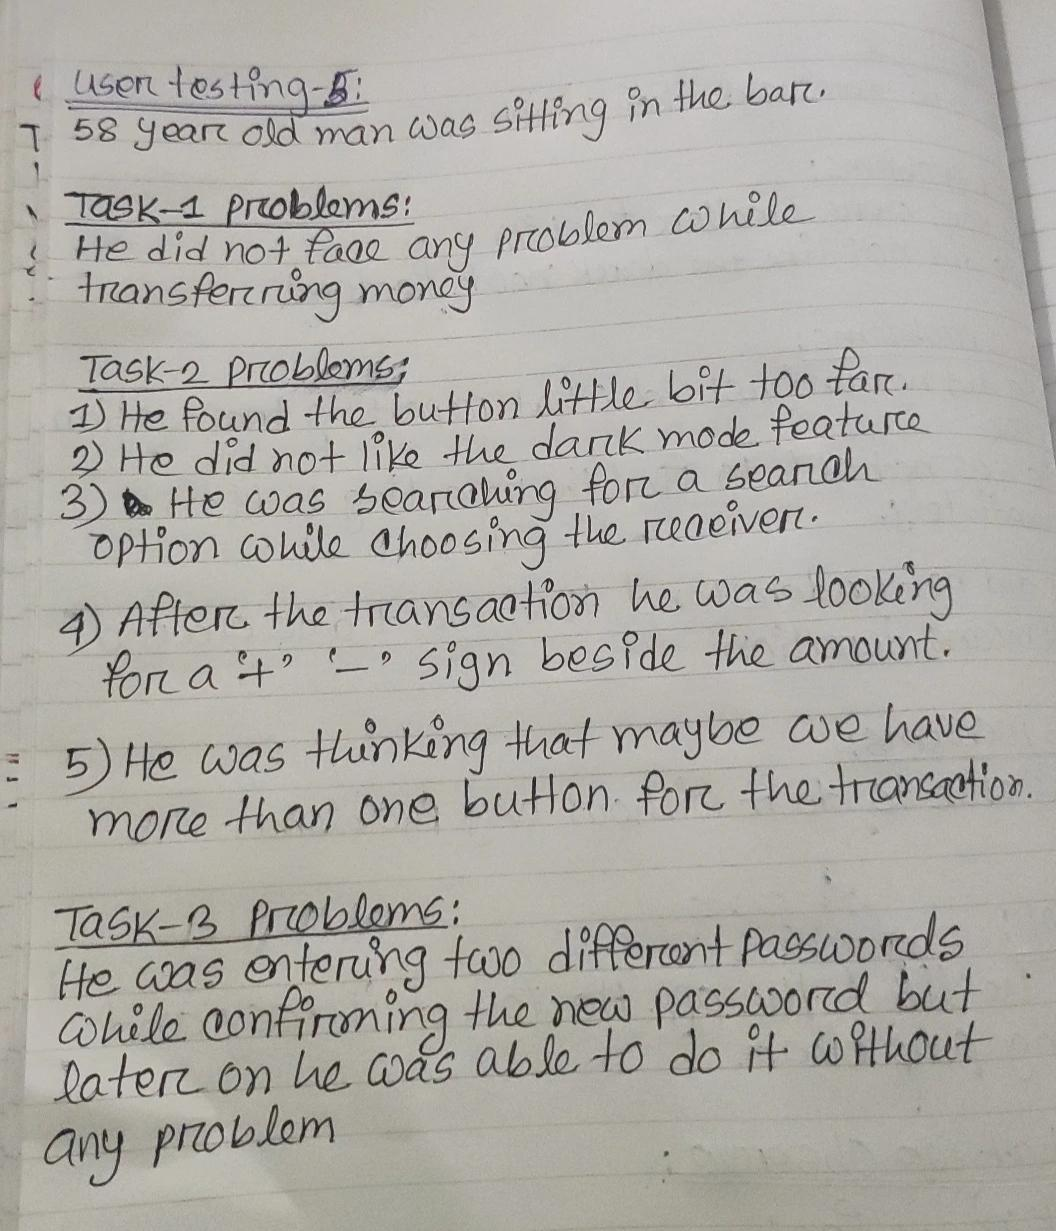 User testing-5:
58 year old man was sitting in the bar.
Task-1 problems:
He did not face any problem while
transferring money
Task-2 problems:
1) He found the button little bit too far.
2) He did not like the dark mode feature
3) He was searching for a search
option while choosing the receiver.
4) After the transaction he was looking
for a '+' '-' sign beside the amount.
5) He was thinking that maybe we have
more than one button for the transaction.
Task-3 problems:
He was entering two different passwords
while confirming the new password but
later on he was able to do it without
any problem